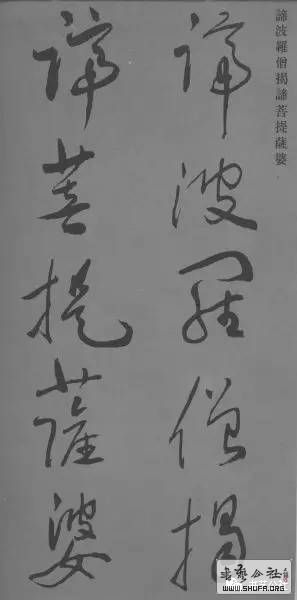 諦波羅僧揭諦菩提薩婆
諦波羅僧揭
諦菩提薩婆
书艺公社
WWW.SHUFA.ORG